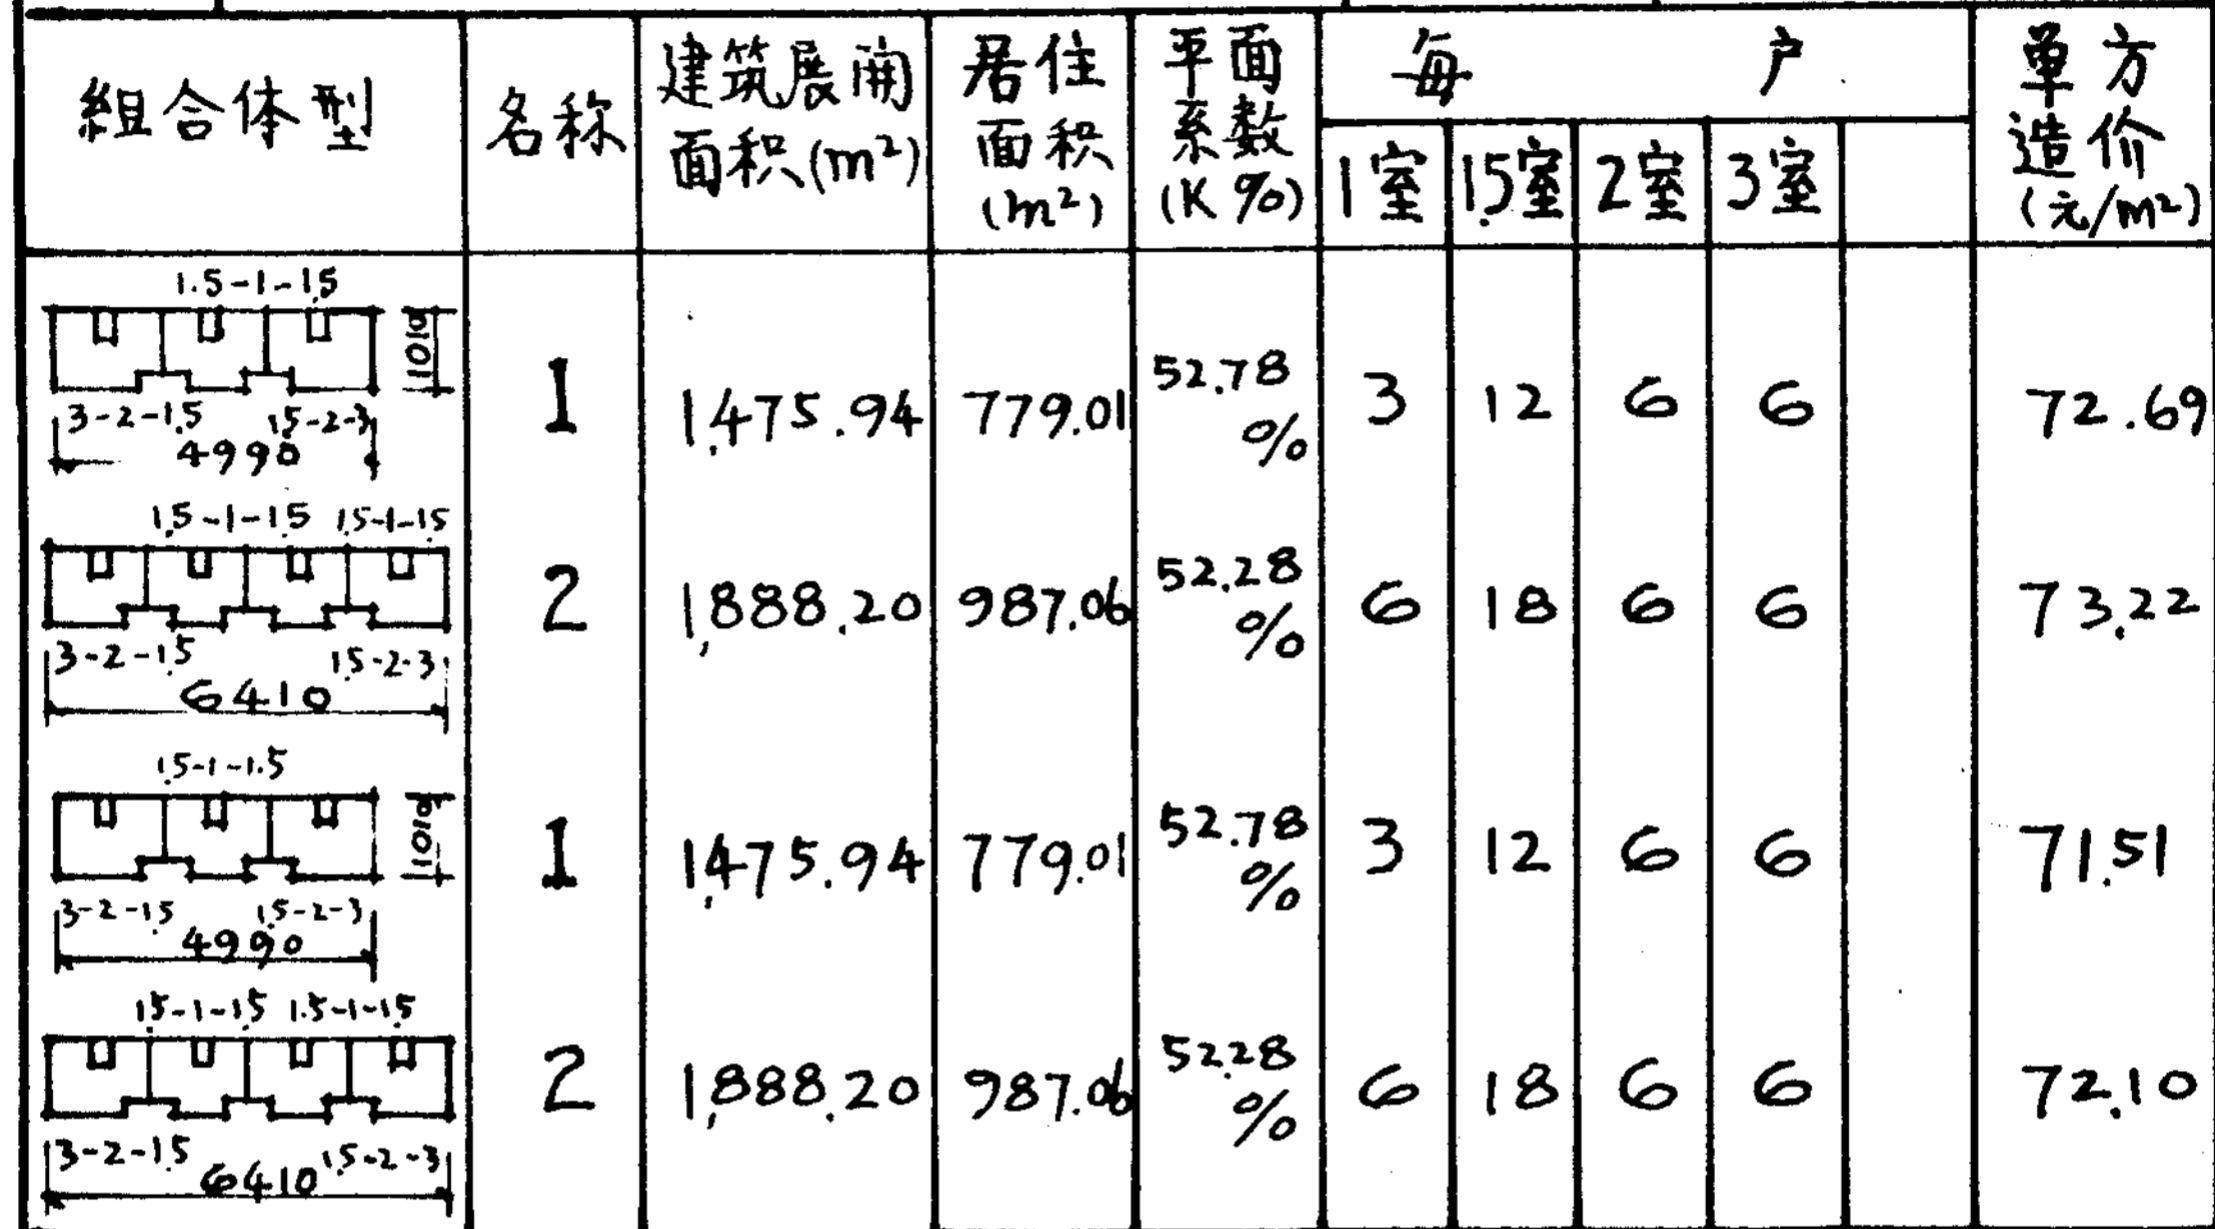 組合体型
名称
建筑展開
面积(m²)
居住
面积
(m²)
平面
系数
(K %)
每 户
1室
1.5室
2室
3室
单方
造价
(元/m²)
1.5-1-1.5
1010
3-2-1.5 1.5-2-3
4990
1
1,475.94
779.01
52.78
%
3
12
6
6
72.69
1.5-1-1.5 1.5-1-1.5
3-2-1.5 1.5-2-3
6410
2
1,888.20
987.06
52.28
%
6
18
6
6
73.22
1.5-1-1.5
1010
3-2-1.5 1.5-2-3
4990
1
1,475.94
779.01
52.78
%
3
12
6
6
71.51
1.5-1-1.5 1.5-1-1.5
3-2-1.5 1.5-2-3
6410
2
1,888.20
987.06
52.28
%
6
18
6
6
72.10